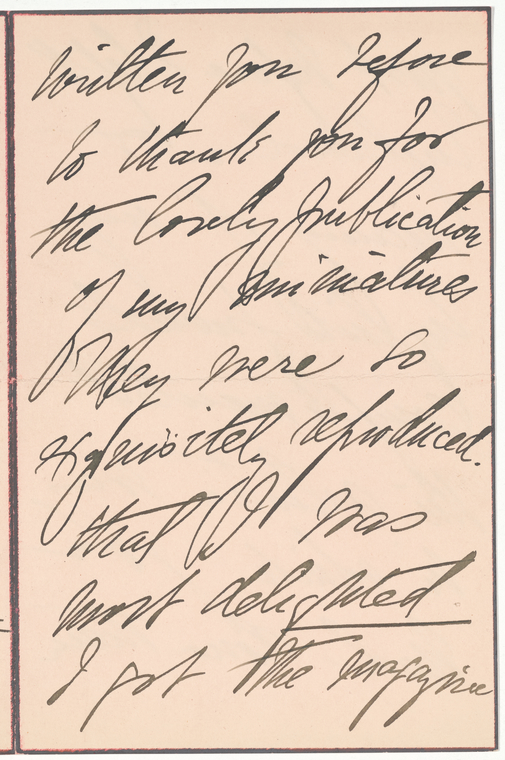 written you before
to thank you for
the lovely publication
of my miniatures
They were so
exquisitely reproduced.
that I was
most delighted
I got the magazine